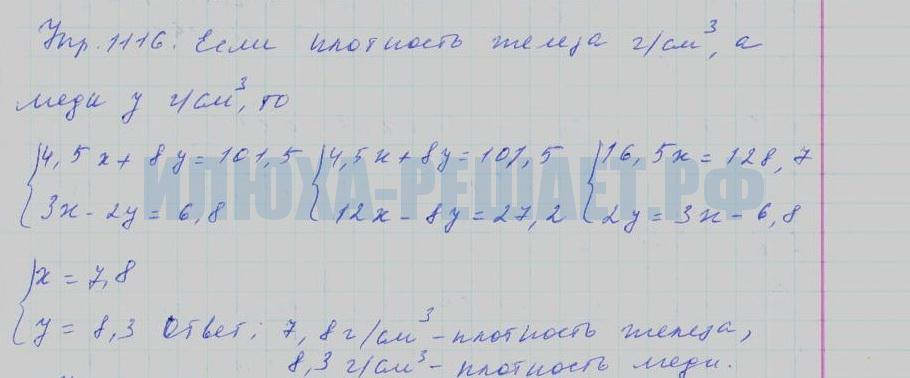 Упр. 1116. Если плотность железа г/см³, а
меди y г/см³, то
{4,5x + 8y = 101,5 {4,5x + 8y = 101,5 {16,5x = 128,7
{3x - 2y = 6,8 {12x - 8y = 27,2 {2y = 3x - 6,8
ИЛЮХА-РЕШАЕТ.РФ
{x = 7,8
{y = 8,3 Ответ: 7,8 г/см³ - плотность железа,
8,3 г/см³ - плотность меди.